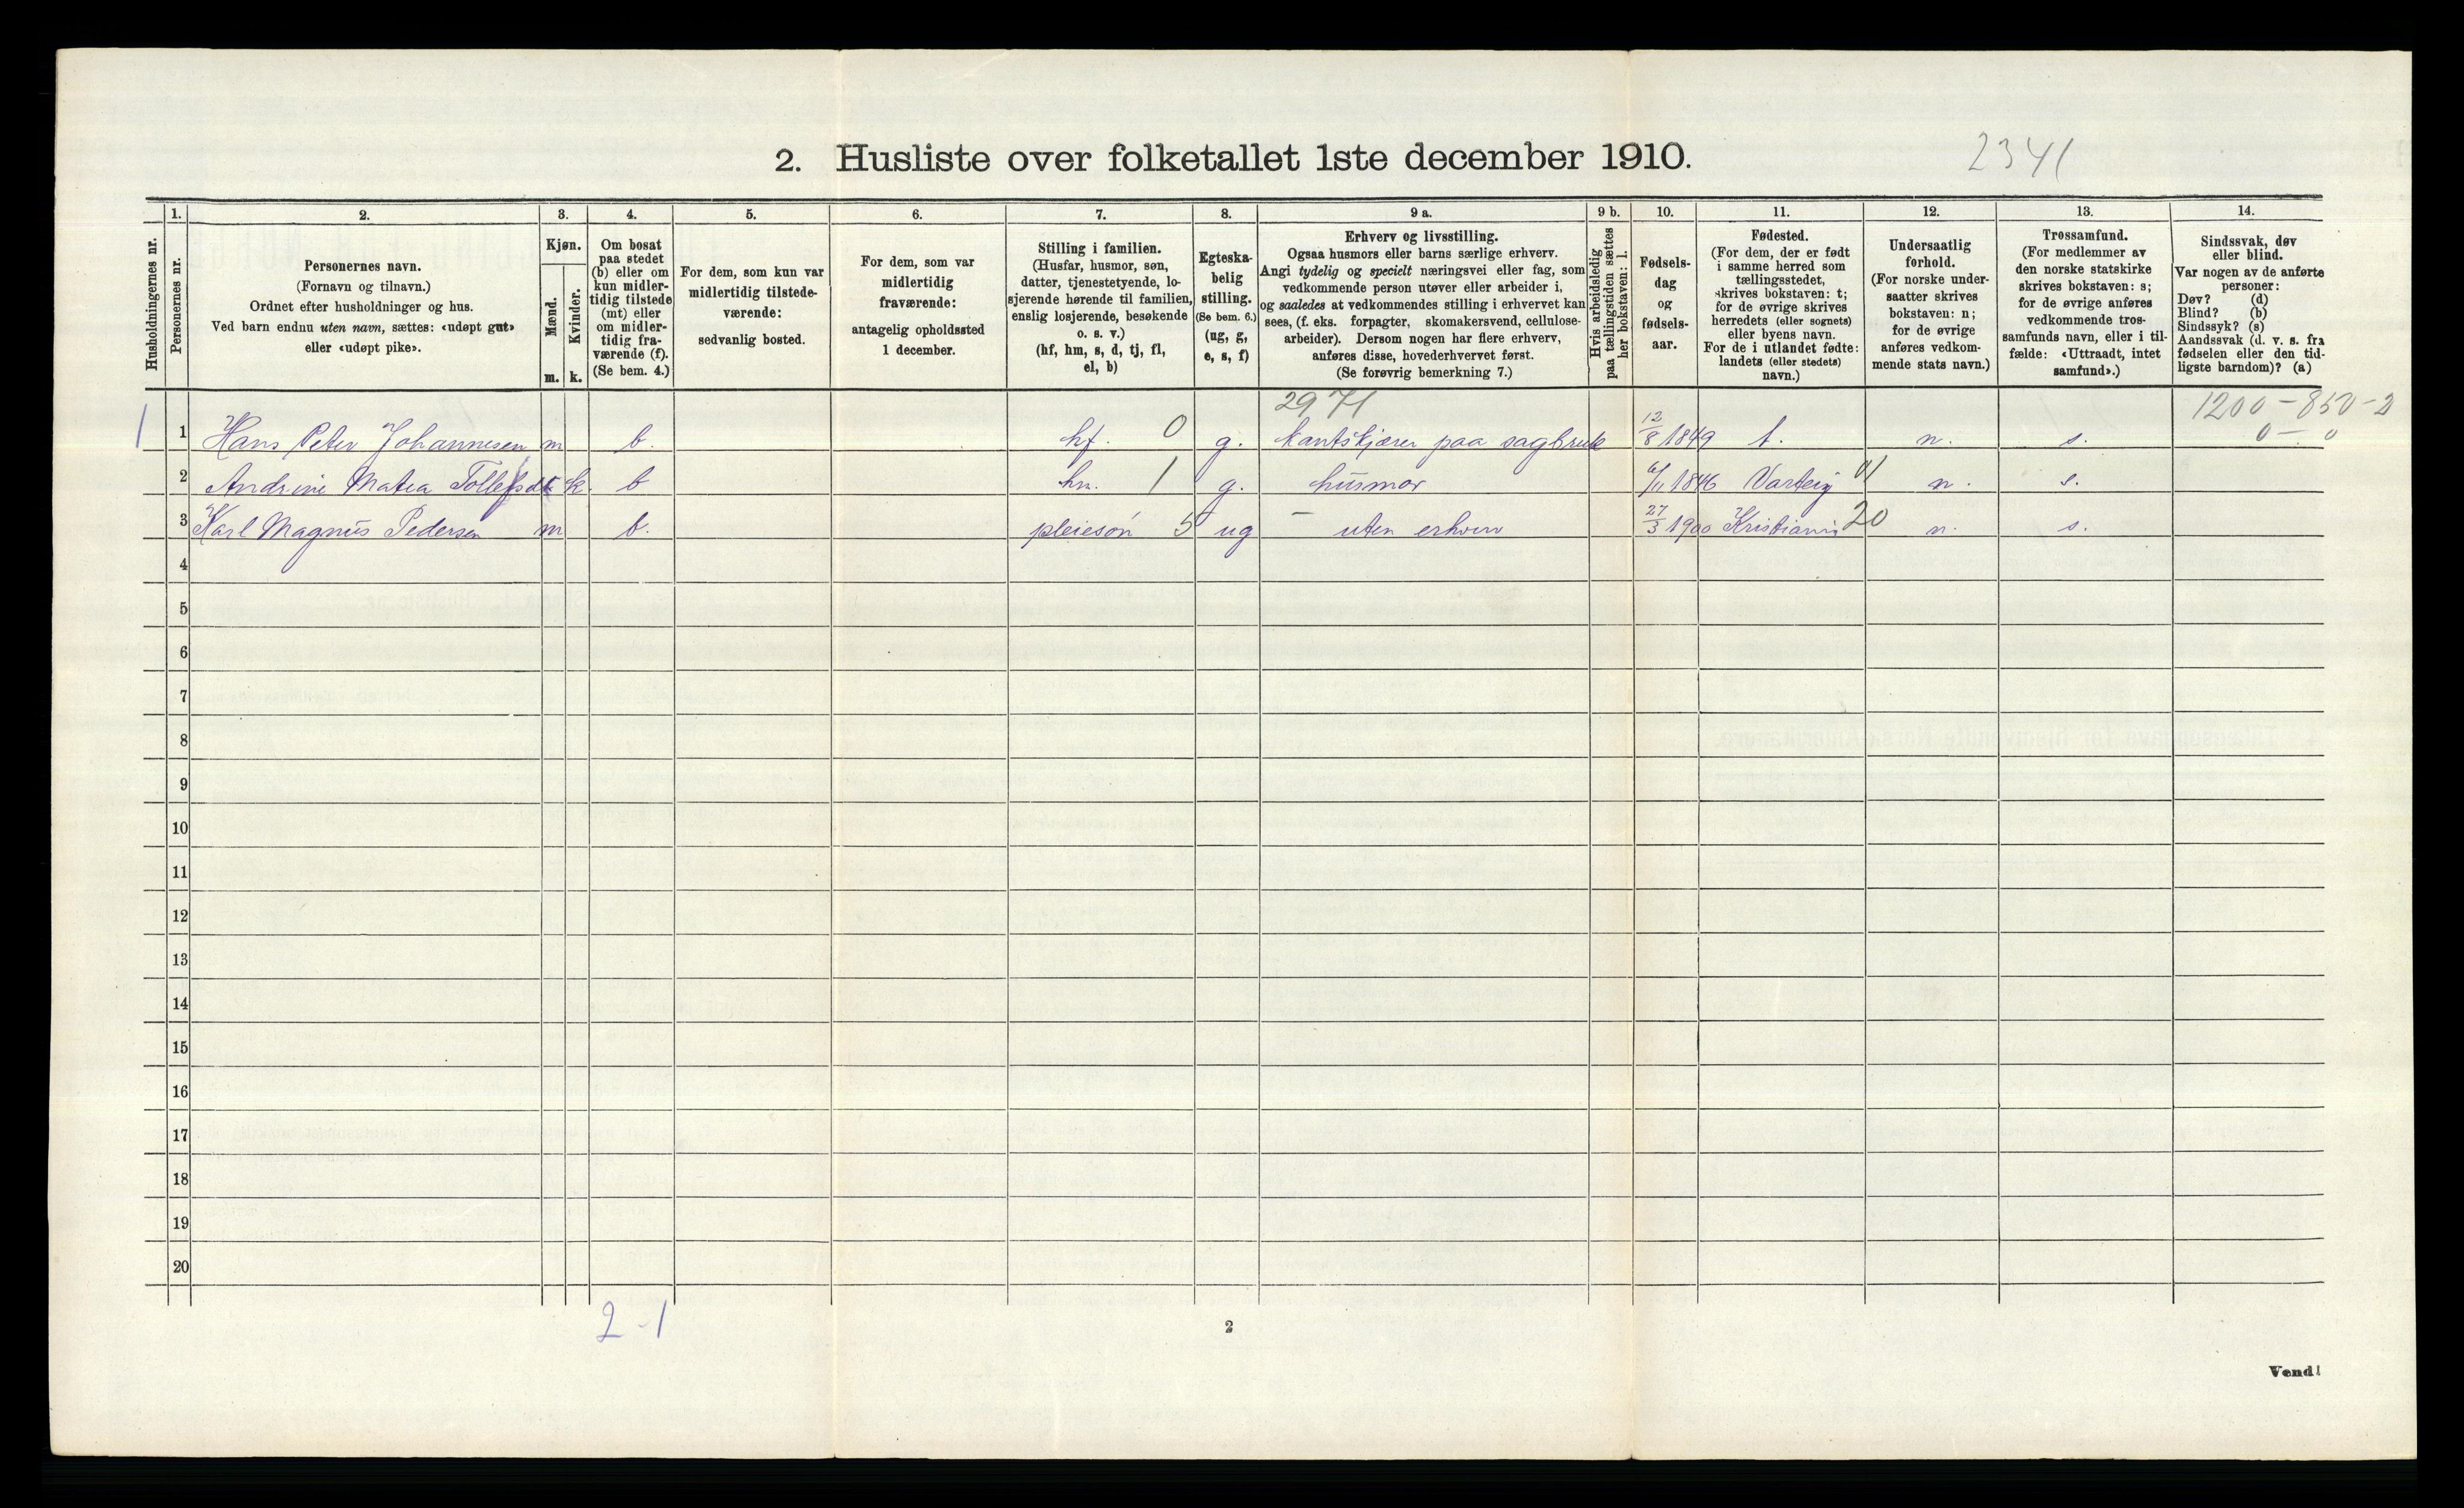 2341
2. Husliste over folketallet 1ste december 1910.
1. 2. 3. 4. 5. 6. 7. 8. 9 a. 9 b. 10. 11. 12. 13. 14.
Husholdningernes nr.
Personernes nr.
Personernes navn.
(Fornavn og tilnavn.)
Ordnet efter husholdninger og hus.
Ved barn endnu uten navn, sættes: «udøpt gut»
eller «udøpt pike».
Kjøn.
Mænd.
Kvinder.
m. k.
Om bosat
paa stedet
(b) eller om
kun midler-
tidig tilstede
(mt) eller
om midler-
tidig fra-
værende (f).
(Se bem. 4.)
For dem, som kun var
midlertidig tilstede-
værende:
sedvanlig bosted.
For dem, som var
midlertidig
fraværende:
antagelig opholdssted
1 december.
Stilling i familien.
(Husfar, husmor, søn,
datter, tjenestetyende, lo-
sjerende hørende til familien,
enslig losjerende, besøkende
o. s. v.)
(hf, hm, s, d, tj, fl,
el, b)
Egteska-
belig
stilling.
(Se bem. 6.)
(ug, g,
e, s, f)
Erhverv og livsstilling.
Ogsaa husmors eller barns særlige erhverv.
Angi tydelig og specielt næringsvei eller fag, som
vedkommende person utøver eller arbeider i,
og saaledes at vedkommendes stilling i erhvervet kan
sees, (f. eks. forpagter, skomakersvend, cellulose-
arbeider). Dersom nogen har flere erhverv,
anføres disse, hovederhvervet først.
(Se forøvrig bemerkning 7.)
Hvis arbeidsledig
paa tællingstiden sættes
her bokstaven: l.
Fødsels-
dag
og
fødsels-
aar.
Fødested.
(For dem, der er født
i samme herred som
tællingsstedet,
skrives bokstaven: t;
for de øvrige skrives
herredets (eller sognets)
eller byens navn.
For de i utlandet fødte:
landets (eller stedets)
navn.)
Undersaatlig
forhold.
(For norske under-
saatter skrives
bokstaven: n;
for de øvrige
anføres vedkom-
mende stats navn.)
Trossamfund.
(For medlemmer av
den norske statskirke
skrives bokstaven: s;
for de øvrige anføres
vedkommende tros-
samfunds navn, eller i til-
fælde: «Uttraadt, intet
samfund».)
Sindssvak, døv
eller blind.
Var nogen av de anførte
personer:
Døv? (d)
Blind? (b)
Sindssyk? (s)
Aandssvak (d. v. s. fra
fødselen eller den tid-
ligste barndom)? (a)
2971 1200-850-2
1 1 Hans Peter Johannesen m b. hf. 0 g. kantskjærer paa sagbruk 12/8 1849 t. n. s. 0-0
2 Andrine Matea Tollefsdt k. b hm. 1 g. husmor 6/11 1846 Varteig 01 n. s.
3 Karl Magnus Pedersen m b. pleiesøn 5 ug – uten erhverv 27/3 1900 Kristiania 20 n. s.
4
5
6
7
8
9
10
11
12
13
14
15
16
17
18
19
20
2-1
2
Vend!